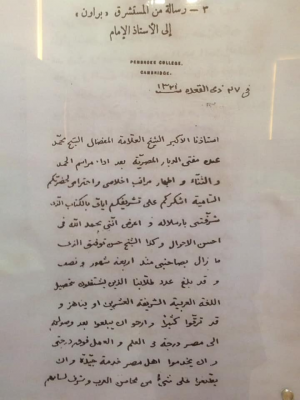 ٣ - رسالة من المستشرق « براون »
إلى الأستاذ الإمام
PEMBROKE COLLEGE,
CAMBRIDGE.
فى ٢٧ ذى القعدة سنة ١٣٢١
استاذنا الأكبر الشيخ العلامة المفضال الشيخ محمد
عبده مفتى الديار المصرية بعد اداء مراسم الحمد
و الثناء و اظهار مراتب اخلاصى واحترامى لحضرتكم
السامية اشكركم على تشريفكم اياى بالكتاب الذى
شرفتنى بارساله و اعرض اننى بحمد الله فى
احسن الاحوال و كذا الشيخ حسن توفيق الذى
ما زال يصاحبنى منذ اربعة شهور و نصف
و قد بلغ عدد طلابنا الذين يشتغلون بتحصيل
اللغة العربية الشريفة العشرين او يناهز و
قد ترقوا كثيرًا و ارجو ان يبلغوا بعد وصولهم
الى مصر درجة فى العلم و العمل فوق درجتى
و ان يخدموا اهل مصر خدمة جيدة و ان
يطلعوا على شئ من محاسن العرب و شرف لسانهم